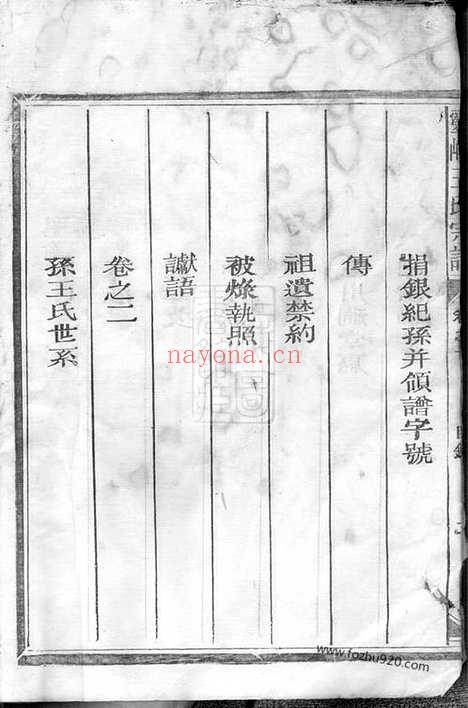 捐銀紀孫并領譜字號
傳
祖遺禁約
被燬執照
讞語
卷之二
孫王氏世系
王氏宗譜
nayona.cn
www.fozhu920.com